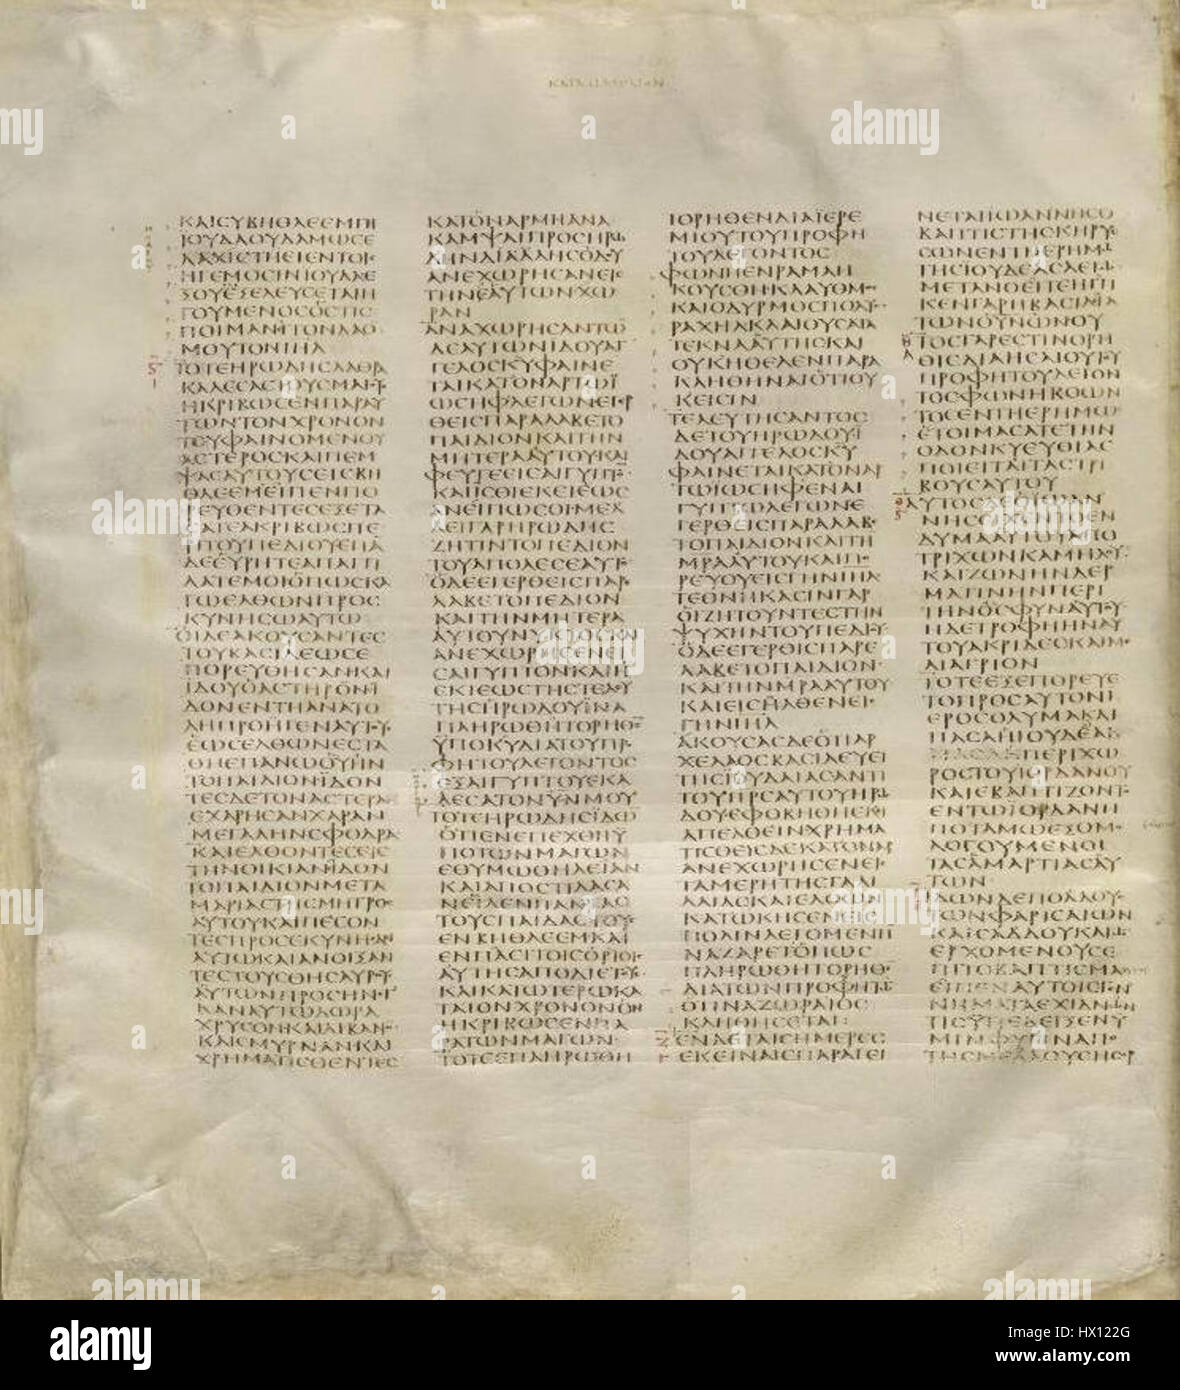 ΚΑΤΑΜΑΘΘΑΙΟΝ
ΚΑΙΣΥΒΗΘΛΕΕΜΓΗ
ΙΟΥΔΑΟΥΔΑΜΩΣΕ
ΛΑΧΙΣΤΗΕΙΕΝΤΟΙϹ
ΗΓΕΜΟΣΙΝΙΟΥΔΑΕ
ΣΟΥΕΞΕΛΕΥΣΕΤΑΙΗ
ΓΟΥΜΕΝΟΣΟΣΤΙΣ
ΠΟΙΜΑΝΙΤΟΝΛΑΟ
ΜΟΥΤΟΝΙΗΛ
ΤΟΤΕΗΡΩΔΗΣΛΑΘΡΑ
ΚΑΛΕΣΑΣΤΟΥΣΜΑΓΟΥ
ΗΚΡΙΒΩΣΕΝΠΑΡΑΥ
ΤΩΝΤΟΝΧΡΟΝΟΝ
ΤΟΥΦΑΙΝΟΜΕΝΟΥ
ΑΣΤΕΡΟΣΚΑΙΠΕΜ
ΨΑΣΑΥΤΟΥΣΕΙΣΒΗ
ΘΛΕΕΜΕΙΠΕΝΠΟ
ΡΕΥΘΕΝΤΕΣΕΞΕΤΑ
ΣΑΤΕΑΚΡΙΒΩΣΠΕ
ΡΙΤΟΥΠΕΔΙΟΥΕΠΑ
ΔΕΕΥΡΗΤΕΑΠΑΓΓΙ
ΛΑΤΕΜΟΙΟΠΩΣΚΑ
ΓΩΕΛΘΩΝΠΡΟΣ
ΚΥΝΗΣΩΑΥΤΩ
ΟΙΔΕΑΚΟΥΣΑΝΤΕΣ
ΤΟΥΒΑΣΙΛΕΩΣΕ
ΠΟΡΕΥΘΗΣΑΝΚΑΙ
ΙΔΟΥΟΑΣΤΗΡΟΝΙ
ΔΟΝΕΝΤΗΑΝΑΤΟ
ΛΗΠΡΟΗΓΕΝΑΥΤΟΥΣ
ΕΩΣΕΛΘΩΝΕΣΤΑ
ΘΗΕΠΑΝΩΟΥΗΝ
ΤΟΠΑΙΔΙΟΝΙΔΟΝ
ΤΕΣΔΕΤΟΝΑΣΤΕΡΑ
ΕΧΑΡΗΣΑΝΧΑΡΑΝ
ΜΕΓΑΛΗΝΣΦΟΔΡΑ
ΚΑΙΕΛΘΟΝΤΕΣΕΙΣ
ΤΗΝΟΙΚΙΑΝΙΔΟΝ
ΤΟΠΑΙΔΙΟΝΜΕΤΑ
ΜΑΡΙΑΣΤΗΣΜΗΤΡΟΣ
ΑΥΤΟΥΚΑΙΠΕΣΟΝ
ΤΕΣΠΡΟΣΕΚΥΝΗΣΑΝ
ΑΥΤΩΚΑΙΑΝΟΙΞΑΝ
ΤΕΣΤΟΥΣΘΗΣΑΥΡΟΥΣ
ΑΥΤΩΝΠΡΟΣΗΝΕΓ
ΚΑΝΑΥΤΩΔΩΡΑ
ΧΡΥΣΟΝΚΑΙΛΙΒΑΝΟΝ
ΚΑΙΣΜΥΡΝΑΝΚΑΙ
ΧΡΗΜΑΤΙΣΘΕΝΤΕΣ
ΚΑΤΟΝΑΡΜΗΑΝΑ
ΚΑΜΨΑΙΠΡΟΣΗΡΩ
ΔΗΝΔΙΑΛΛΗΣΟΔΟΥ
ΑΝΕΧΩΡΗΣΑΝΕΙΣ
ΤΗΝΕΑΥΤΩΝΧΩ
ΡΑΝ
ΑΝΑΧΩΡΗΣΑΝΤΩ
ΔΕΑΥΤΩΝΙΔΟΥΑΓ
ΓΕΛΟΣΚΥΦΑΙΝΕ
ΤΑΙΚΑΤΟΝΑΡΤΩΙ
ΩΣΗΦΛΕΓΩΝΕΓΕΡ
ΘΕΙΣΠΑΡΑΛΑΒΕΤΟ
ΠΑΙΔΙΟΝΚΑΙΤΗΝ
ΜΗΤΕΡΑΑΥΤΟΥΚΑΙ
ΦΕΥΓΕΕΙΣΑΙΓΥΠΤΟ
ΚΑΙΙΣΘΙΕΚΕΙΕΩΣ
ΑΝΕΙΠΩΣΟΙΜΕΛ
ΛΕΙΓΑΡΗΡΩΔΗΣ
ΖΗΤΙΝΤΟΠΕΔΙΟΝ
ΤΟΥΑΠΟΛΕΣΕΑΥΤΟ
ΟΔΕΕΓΕΡΘΕΙΣΠΑΡΕ
ΛΑΒΕΤΟΠΕΔΙΟΝ
ΚΑΙΤΗΝΜΗΤΕΡΑ
ΑΥΤΟΥΝΥΚΤΟΣΚΑΙ
ΑΝΕΧΩΡΗΣΕΝΕΙ
ΣΑΙΓΥΠΤΟΝΚΑΙΗ
ΕΚΙΕΩΣΤΗΣΤΕΛΕΥ
ΤΗΣΗΡΩΔΟΥΙΝΑ
ΠΛΗΡΩΘΗΤΟΡΗΘΕ
ΥΠΟΚΥΔΙΑΤΟΥΠΡΟ
ΦΗΤΟΥΛΕΓΟΝΤΟΣ
ΕΞΑΙΓΥΠΤΟΥΕΚΑ
ΛΕΣΑΤΟΝΥΝΜΟΥ
ΤΟΤΕΗΡΩΔΗΣΙΔΩ
ΟΤΙΕΝΕΠΕΧΘΗΥ
ΠΟΤΩΝΜΑΓΩΝ
ΕΘΥΜΩΘΗΛΕΙΑΝ
ΚΑΙΑΠΟΣΤΙΛΑΣΑ
ΝΕΙΛΕΝΠΑΝΤΑΣ
ΤΟΥΣΠΑΙΔΑΣΤΟΥΣ
ΕΝΒΗΘΛΕΕΜΚΑΙ
ΕΝΠΑΣΙΤΟΙΣΟΡΙΟΙΣ
ΑΥΤΗΣΑΠΟΔΙΕΤΟΥΣ
ΚΑΙΚΑΤΩΤΕΡΩΚΑ
ΤΑΤΟΝΧΡΟΝΟΝΟΝ
ΗΚΡΙΒΩΣΕΝΠΑ
ΡΑΤΩΝΜΑΓΩΝ
ΤΟΤΕΕΠΛΗΡΩΘΗ
ΤΟΡΗΘΕΝΔΙΑΙΕΡΕ
ΜΙΟΥΤΟΥΠΡΟΦΗ
ΤΟΥΛΕΓΟΝΤΟΣ
ΦΩΝΗΕΝΡΑΜΑΗ
ΚΟΥΣΘΗΚΛΑΥΘΜΟΣ
ΚΑΙΟΔΥΡΜΟΣΠΟΛΥΣ
ΡΑΧΗΛΚΛΑΙΟΥΣΑΤΑ
ΤΕΚΝΑΑΥΤΗΣΚΑΙ
ΟΥΚΗΘΕΛΕΝΠΑΡΑ
ΚΛΗΘΗΝΑΙΟΤΙΟΥ
ΚΕΙΣΙΝ
ΤΕΛΕΥΤΗΣΑΝΤΟΣ
ΔΕΤΟΥΗΡΩΔΟΥΙ
ΔΟΥΑΓΓΕΛΟΣΚΥ
ΦΑΙΝΕΤΑΙΚΑΤΟΝΑΡ
ΤΩΙΩΣΗΦΕΝΑΙ
ΓΥΠΤΩΛΕΓΩΝΕ
ΓΕΡΘΕΙΣΠΑΡΑΛΑΒΕ
ΤΟΠΑΙΔΙΟΝΚΑΙΤΗ
ΜΡΑΑΥΤΟΥΚΑΙΠΟ
ΡΕΥΟΥΕΙΣΓΗΝΙΗΛ
ΤΕΘΝΗΚΑΣΙΝΓΑΡ
ΟΙΖΗΤΟΥΝΤΕΣΤΗΝ
ΨΥΧΗΝΤΟΥΠΕΔΙΟΥ
ΟΔΕΕΓΕΡΘΙΣΠΑΡΕ
ΛΑΒΕΤΟΠΑΙΔΙΟΝ
ΚΑΙΤΗΝΜΡΑΑΥΤΟΥ
ΚΑΙΕΙΣΗΛΘΕΝΕΙΣ
ΓΗΝΙΗΛ
ΑΚΟΥΣΑΣΔΕΟΤΙΑΡ
ΧΕΛΑΟΣΒΑΣΙΛΕΥΕΙ
ΤΗΣΙΟΥΔΑΙΑΣΑΝΤΙ
ΤΟΥΠΡΣΑΥΤΟΥΗΡΩ
ΔΟΥΕΦΟΒΗΘΗΕΚΕΙ
ΑΠΕΛΘΕΙΝΧΡΗΜΑ
ΤΙΣΘΕΙΣΔΕΚΑΤΟΝΑΡ
ΑΝΕΧΩΡΗΣΕΝΕΙΣ
ΤΑΜΕΡΗΤΗΣΓΑΛΙ
ΛΑΙΑΣΚΑΙΕΛΘΩΝ
ΚΑΤΩΚΗΣΕΝΕΙΣ
ΠΟΛΙΝΛΕΓΟΜΕΝΗ
ΝΑΖΑΡΕΤΟΠΩΣ
ΠΛΗΡΩΘΗΤΟΡΗΘΕ
ΔΙΑΤΩΝΠΡΟΦΗΤΩ
ΟΤΙΝΑΖΩΡΑΙΟΣ
ΚΛΗΘΗΣΕΤΑΙ
ΕΝΔΕΤΑΙΣΗΜΕΡΕΣ
ΕΚΕΙΝΑΙΣΠΑΡΑΓΕΙ
ΝΕΤΑΙΙΩΑΝΝΗΣΟ
ΒΑΠΤΙΣΤΗΣΚΗΡΥΣ
ΣΩΝΕΝΤΗΕΡΗΜΩ
ΤΗΣΙΟΥΔΕΑΣΛΕΓΩ
ΜΕΤΑΝΟΕΙΤΕΗΓΓΙ
ΚΕΝΓΑΡΗΒΑΣΙΛΙΑ
ΤΩΝΟΥΝΩΝΟΥ
ΤΟΣΓΑΡΕΣΤΙΝΟΡΗ
ΘΙΣΔΙΑΗΣΑΙΟΥΤΟΥ
ΠΡΟΦΗΤΟΥΛΕΓΟΝ
ΤΟΣΦΩΝΗΒΟΩΝ
ΤΟΣΕΝΤΗΕΡΗΜΩ
ΕΤΟΙΜΑΣΑΤΕΤΗΝ
ΟΔΟΝΚΥΕΥΘΙΑΣ
ΠΟΙΕΙΤΑΙΤΑΣΤΡΙ
ΒΟΥΣΑΥΤΟΥ
ΑΥΤΟΣΔΕΟΙΩΑΝ
ΝΗΣΕΙΧΕΝΤΟΕΝ
ΔΥΜΑΑΥΤΟΥΑΠΟ
ΤΡΙΧΩΝΚΑΜΗΛΟΥ
ΚΑΙΖΩΝΗΝΔΕΡ
ΜΑΤΙΝΗΝΠΕΡΙ
ΤΗΝΟΣΦΥΝΑΥΤΟΥ
ΗΔΕΤΡΟΦΗΗΝΑΥ
ΤΟΥΑΚΡΙΔΕΣΚΑΙΜΕ
ΛΙΑΓΡΙΟΝ
ΤΟΤΕΕΞΕΠΟΡΕΥΕ
ΤΟΠΡΟΣΑΥΤΟΝΙ
ΕΡΟΣΟΛΥΜΑΚΑΙ
ΠΑΣΑΗΙΟΥΔΕΑΚ
ΠΑΣΑΗΠΕΡΙΧΩ
ΡΟΣΤΟΥΙΟΡΔΑΝΟΥ
ΚΑΙΕΒΑΠΤΙΖΟΝΤΟ
ΕΝΤΩΙΟΡΔΑΝΗ
ΠΟΤΑΜΩΕΞΟΜΟ
ΛΟΓΟΥΜΕΝΟΙ
ΤΑΣΑΜΑΡΤΙΑΣΑΥ
ΤΩΝ
ΙΔΩΝΔΕΠΟΛΛΟΥΣ
ΤΩΝΦΑΡΙΣΑΙΩΝ
ΚΑΙΣΑΔΔΟΥΚΑΙΩ
ΕΡΧΟΜΕΝΟΥΣΕ
ΠΙΤΟΒΑΠΤΙΣΜΑ
ΕΙΠΕΝΑΥΤΟΙΣΓΕΝ
ΝΗΜΑΤΑΕΧΙΔΝΩΝ
ΤΙΣΥΠΕΔΕΙΞΕΝΥ
ΜΙΝΦΥΓΙΝΑΠΟ
ΤΗΣΜΕΛΛΟΥΣΗΣΟΡ
alamy
a
HX122G
www.alamy.com